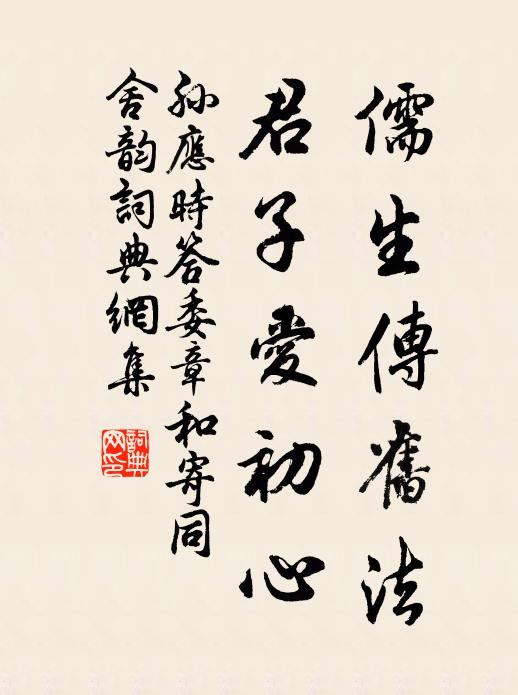 儒生傳舊法
君子愛初心
孫應時答委章和寄同
舍韵詞典網集
詞典网印